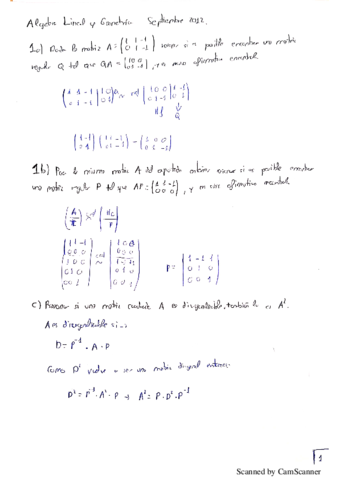 Algebra Lineal y Geometría Septiembre 2012.
1a) Dada la matriz A = (1 1 -1
0 1 -1) razonar si es posible encontrar una matriz
regular Q tal que QA = (1 0 0
0 1 -1), y en caso afirmativo encontrarla
(1 1 -1 | 1 0
0 1 -1 | 0 1) ~ (1 0 0 | 1 -1
0 1 -1 | 0 1)
Q
(1 -1
0 1) (1 1 -1
0 1 -1) = (1 0 0
0 1 -1)
1b) Para la misma matriz A del apartado anterior razonar si es posible encontrar
una matriz regular P tal que AP = (1 1 -1
0 0 0), y en caso afirmativo encontrarla
P = (1 -1 1
0 1 0
0 0 1)
c) Razonar si una matriz cuadrada A es diagonalizable, también lo es A².
A es diagonalizable si
D = P⁻¹ · A · P
Como D² vuelve a ser una matriz diagonal entonces
D² = P⁻¹ · A² · P → A² = P · D² · P⁻¹
1
Scanned by CamScanner